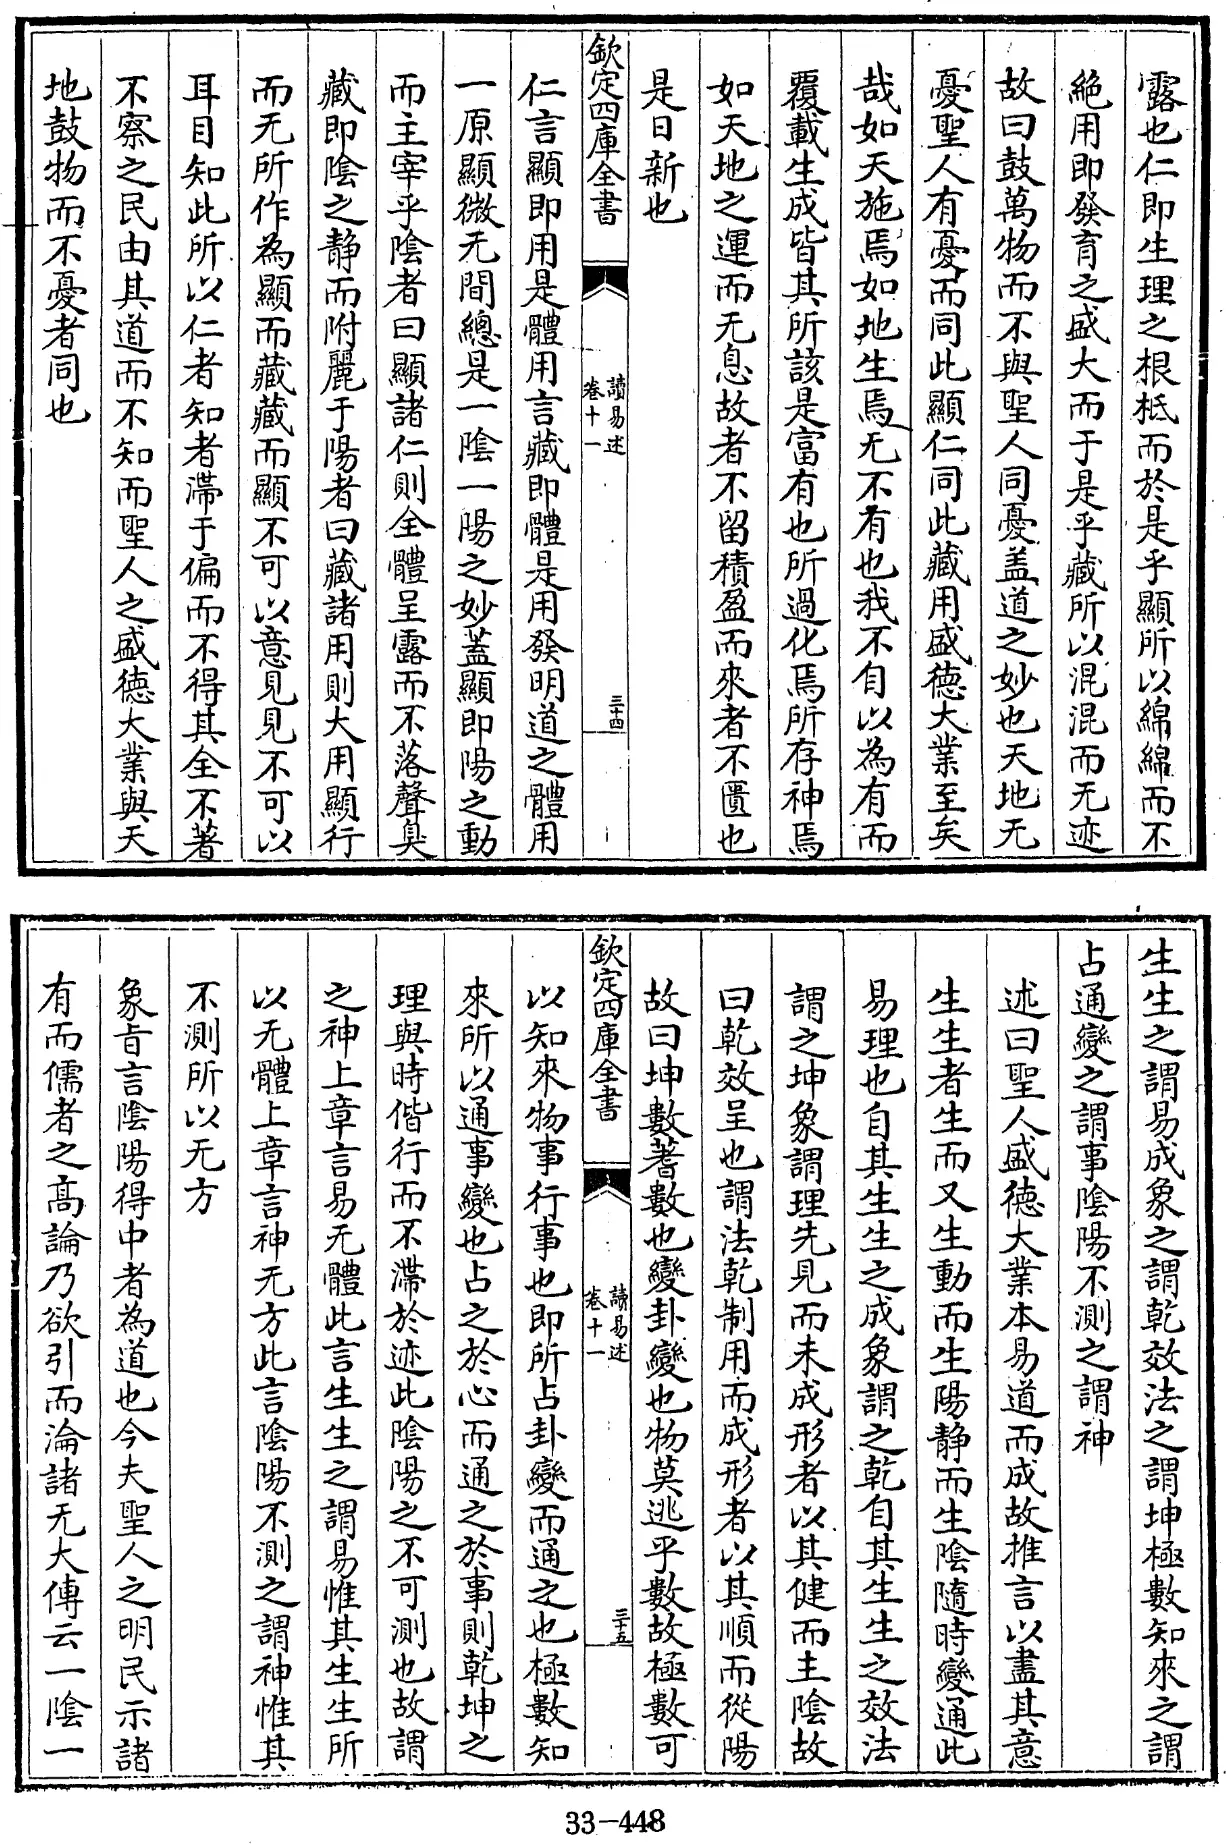 露也仁即生理之根柢而於是乎顯所以綿綿而不
絶用即發育之盛大而于是乎藏所以混混而无迹
故曰鼓萬物而不與聖人同憂盖道之妙也天地无
憂聖人有憂而同此顯仁同此藏用盛德大業至矣
哉如天施焉如地生焉无不有也我不自以為有而
覆載生成皆其所該是富有也所過化焉所存神焉
如天地之運而无息故者不留積盈而來者不匱也
是日新也
欽定四庫全書
讀易述
卷十一
三十四
仁言顯即用是體用言藏即體是用發明道之體用
一原顯微无間總是一陰一陽之妙蓋顯即陽之動
而主宰乎陰者曰顯諸仁則全體呈露而不落聲臭
藏即陰之静而附麗于陽者曰藏諸用則大用顯行
而无所作為顯而藏藏而顯不可以意見見不可以
耳目知此所以仁者知者滯于偏而不得其全不著
不察之民由其道而不知而聖人之盛德大業與天
地鼓物而不憂者同也
生生之謂易成象之謂乾效法之謂坤極數知來之謂
占通變之謂事陰陽不測之謂神
述曰聖人盛德大業本易道而成故推言以盡其意
生生者生而又生動而生陽静而生陰隨時變通此
易理也自其生生之成象謂之乾自其生生之效法
謂之坤象謂理先見而未成形者以其健而主陰故
曰乾效呈也謂法乾制用而成形者以其順而從陽
故曰坤數蓍數也變卦變也物莫逃乎數故極數可
欽定四庫全書
讀易述
卷十一
三十五
以知來物事行事也即所占卦變而通之也極數知
來所以通事變也占之於心而通之於事則乾坤之
理與時偕行而不滯於迹此陰陽之不可測也故謂
之神上章言易无體此言生生之謂易惟其生生所
以无體上章言神无方此言陰陽不測之謂神惟其
不測所以无方
象旨言陰陽得中者為道也今夫聖人之明民示諸
有而儒者之高論乃欲引而淪諸无大傳云一陰一
33-448